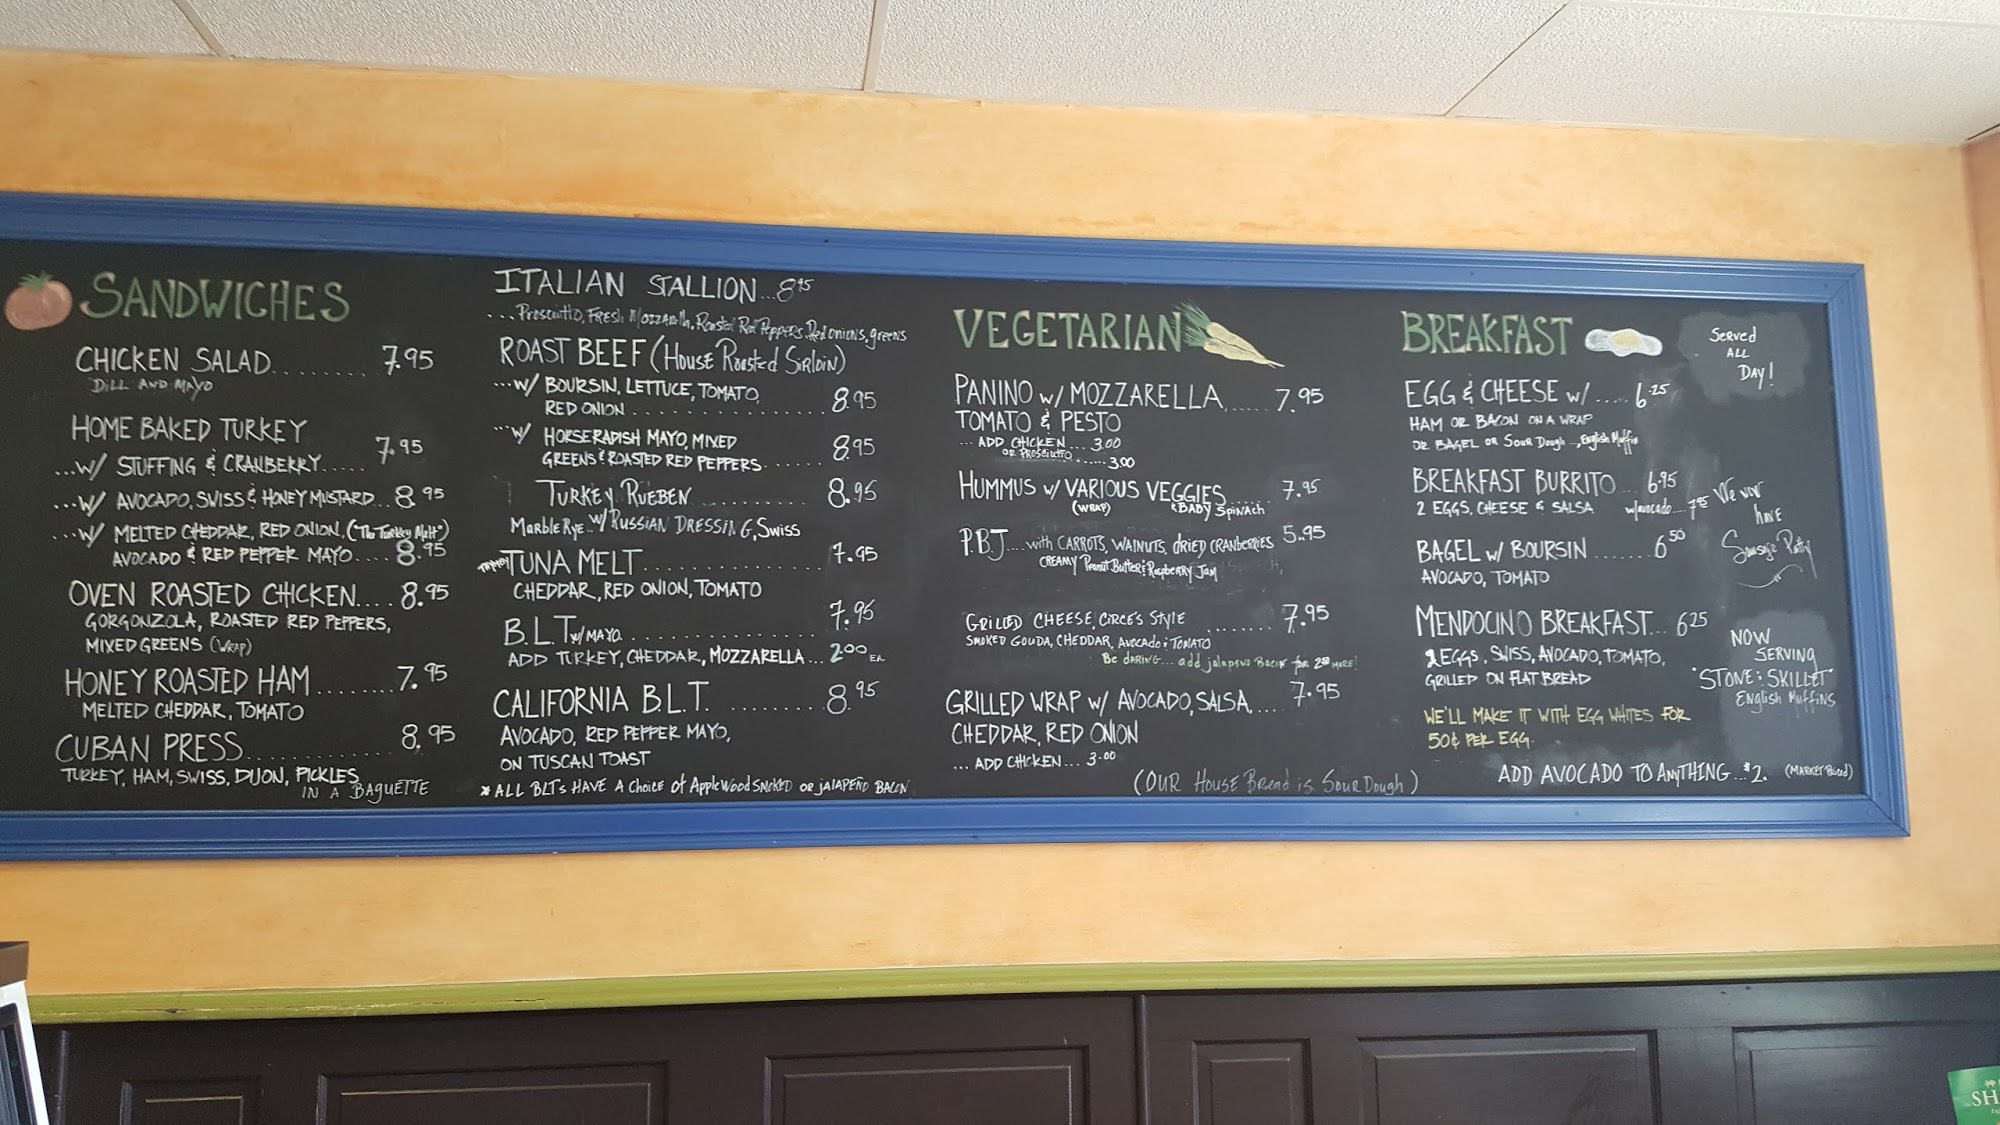 SANDWICHES
CHICKEN SALAD........ 7.95
DILL AND MAYO
HOME BAKED TURKEY
...W/ STUFFING & CRANBERRY..... 7.95
...W/ AVOCADO, SWISS & HONEY MUSTARD... 8.95
...W/ MELTED CHEDDAR, RED ONION, ("The Turkey Melt")
AVOCADO & RED PEPPER MAYO.... 8.95
OVEN ROASTED CHICKEN.... 8.95
GORGONZOLA, ROASTED RED PEPPERS,
MIXED GREENS (WRAP)
HONEY ROASTED HAM........ 7.95
MELTED CHEDDAR, TOMATO
CUBAN PRESS............ 8.95
TURKEY, HAM, SWISS, DIJON, PICKLES
IN A BAGUETTE
ITALIAN STALLION...8.95
...Prosciutto, FRESH Mozzarella, Roasted Red Peppers, Red onions, greens
ROAST BEEF (House Roasted Sirloin)
...W/ BOURSIN, LETTUCE, TOMATO,
RED ONION.............. 8.95
...W/ HORSERADISH MAYO, MIXED
GREENS & ROASTED RED PEPPERS...... 8.95
TURKEY RUEBEN.......... 8.95
Marble Rye.. W/ RUSSIAN DRESSING, Swiss
TUNA MELT................ 7.95
CHEDDAR, RED ONION, TOMATO
B.L.T w/MAYO................ 7.95
ADD TURKEY, CHEDDAR, MOZZARELLA... 2.00 EA.
CALIFORNIA B.L.T. ........ 8.95
AVOCADO, RED PEPPER MAYO,
ON TUSCAN TOAST
* ALL BLTs HAVE A CHOICE of AppleWood SMOKED OR JALAPEÑO BACON
VEGETARIAN
PANINO W/ MOZZARELLA...... 7.95
TOMATO & PESTO
... ADD CHICKEN... 3.00
OR PROSCIUTTO...... 3.00
HUMMUS W/ VARIOUS VEGGIES..... 7.95
(WRAP) & BABY SPINACH
P.B.J.... with CARROTS, WALNUTS, DRIED CRANBERRIES 5.95
CREAMY Peanut Butter & Raspberry Jam
GRILLED CHEESE, CIRCE'S STYLE ........ 7.95
SMOKED GOUDA, CHEDDAR, AVOCADO & TOMATO
Be DARING... add jalapeno Bacon for 2.50 MORE!
GRILLED WRAP W/ AVOCADO, SALSA, .... 7.95
CHEDDAR, RED ONION
... ADD CHICKEN... 3.00
(OUR House Bread is Sour Dough)
BREAKFAST
Served
ALL
DAY!
EGG & CHEESE W/ .... 6.25
HAM OR BACON ON A WRAP
OR BAGEL OR SOUR DOUGH ..., English Muffin
BREAKFAST BURRITO... 6.95
2 EGGS, CHEESE & SALSA w/avocado... 7.95
We now
have
Sausage Patty
BAGEL W/ BOURSIN ....... 6.50
AVOCADO, TOMATO
MENDOCINO BREAKFAST... 6.25
2 EGGS, SWISS, AVOCADO, TOMATO,
GRILLED ON FLAT BREAD
NOW
SERVING
"STONE & SKILLET"
English Muffins
WE'LL MAKE IT WITH EGG WHITES FOR
50¢ PER EGG.
ADD AVOCADO TO ANYTHING...$2. (MARKET PRICED)
SH